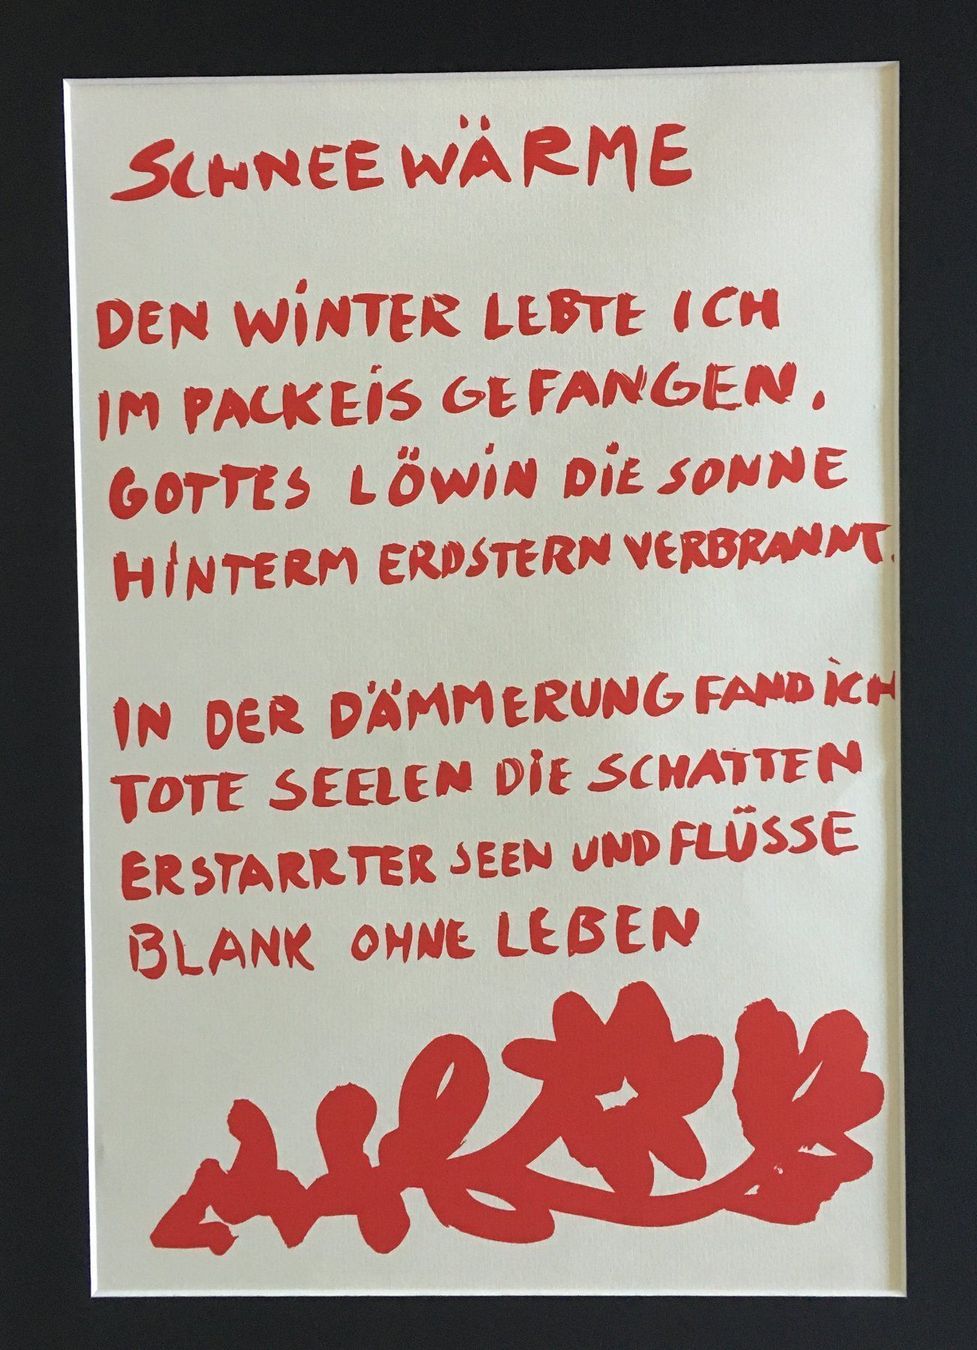 SCHNEEWÄRME
DEN WINTER LEBTE ICH
IM PACKEIS GEFANGEN.
GOTTES LÖWIN DIE SONNE
HINTERM ERDSTERN VERBRANNT.
IN DER DÄMMERUNG FAND ICH
TOTE SEELEN DIE SCHATTEN
ERSTARRTER SEEN UND FLÜSSE
BLANK OHNE LEBEN